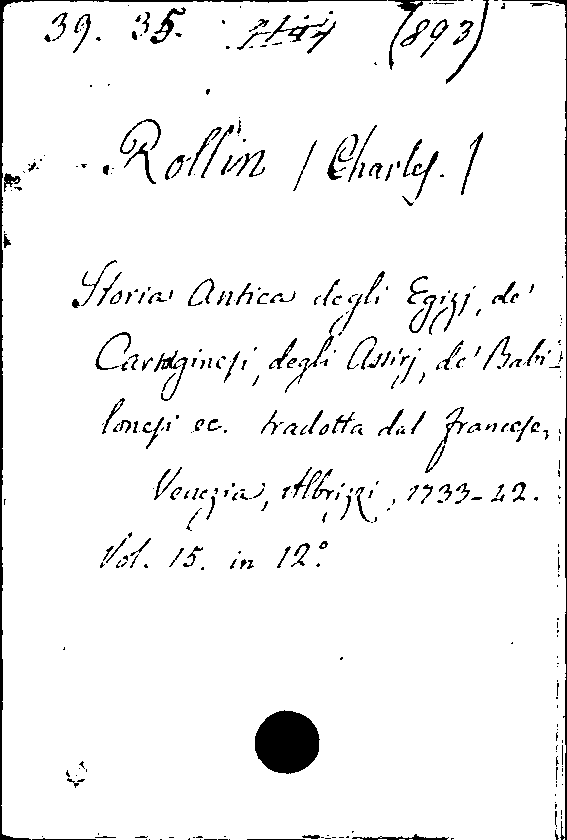 39. 35. (893)
Rollin / Charles. /
Storia Antica degli Egizj, de'
Cartaginesi, degli Assirj, de' Babi-
lonesi ec. tradotta dal francese,
Venezia, Albrizzi, 1733-42.
Vol. 15. in 12.º